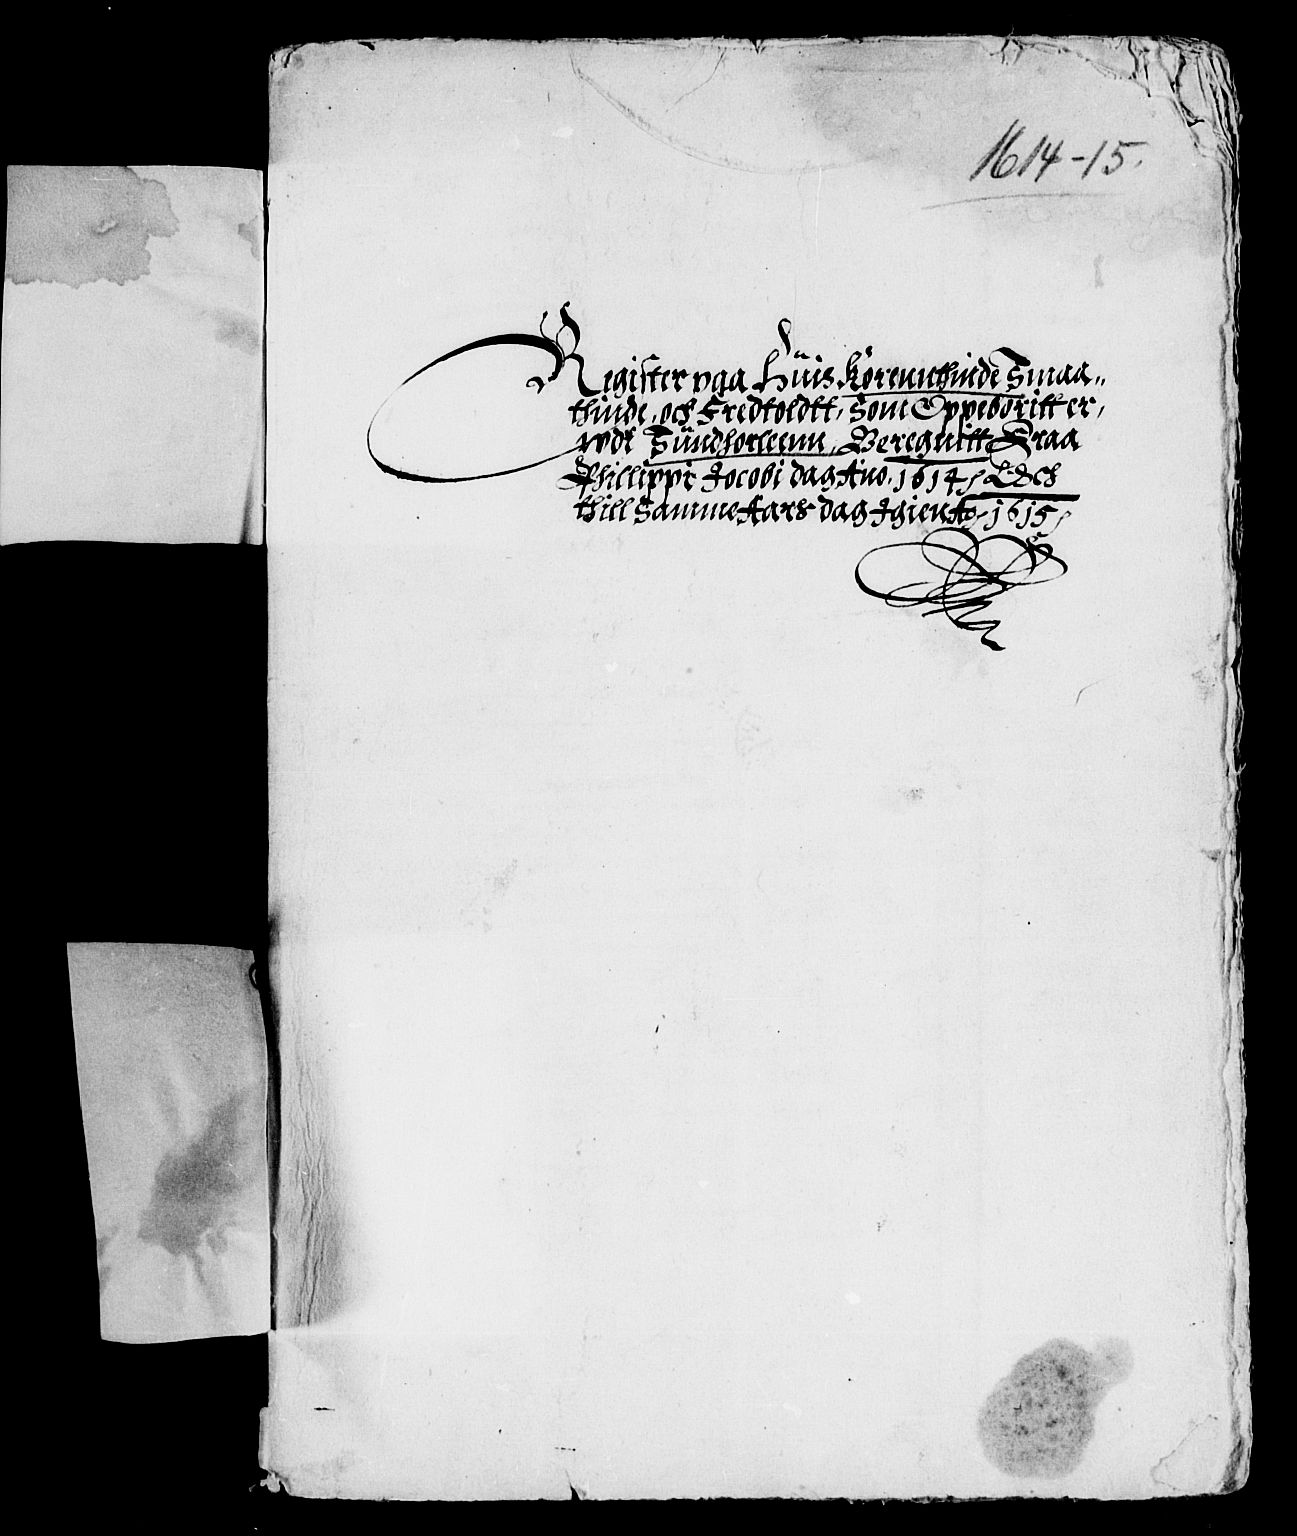 1614-15.
Register paa Huis Korennthinde Smaa„
thinde, och Fredtoldtt, som Oppeboritt er,
wdi Sundhorleenn, Beregnitt Fraa
Phillippi Jacobi dag Ano. 1614 / Och
thill Samme Aars dag Igien Ao / 1615 /